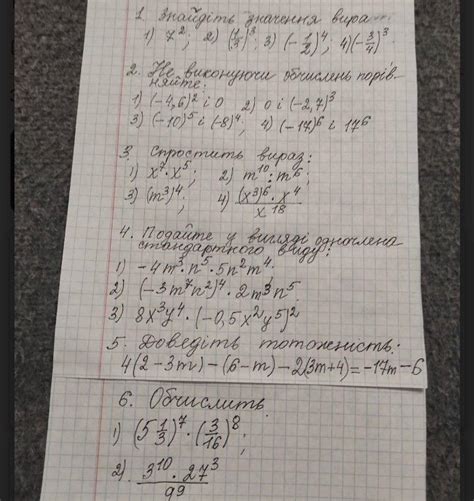 1. Знайдіть значення вира
1) 7²; 2) (1/3)³; 3) (-1/2)⁴; 4) (-3/4)³
2. Не виконуючи обчислень порів-
няйте:
1) (-4,6)² і 0 2) 0 і (-2,7)³
3) (-10)⁵ і (-8)⁴; 4) (-17)⁶ і 17⁶
3. Спростить вираз:
1) x⁷·x⁵; 2) m¹⁰:m⁶;
3) (m³)⁴; 4) (x³)⁶·x⁴/x¹⁸
4. Подайте у вигляді одночлена
стандартного виду:
1) -4m³·n⁵·5n²m⁴;
2) (-3m⁷n²)⁴·2m³n⁵
3) 8x³y⁴·(-0,5x²y⁵)²
5. Доведіть тотожність:
4(2-3m)-(6-m)-2(3m+4)=-17m-6
6. Обчислить
1) (5 1/3)⁷·(3/16)⁸;
2) 3¹⁰·27³/9⁹